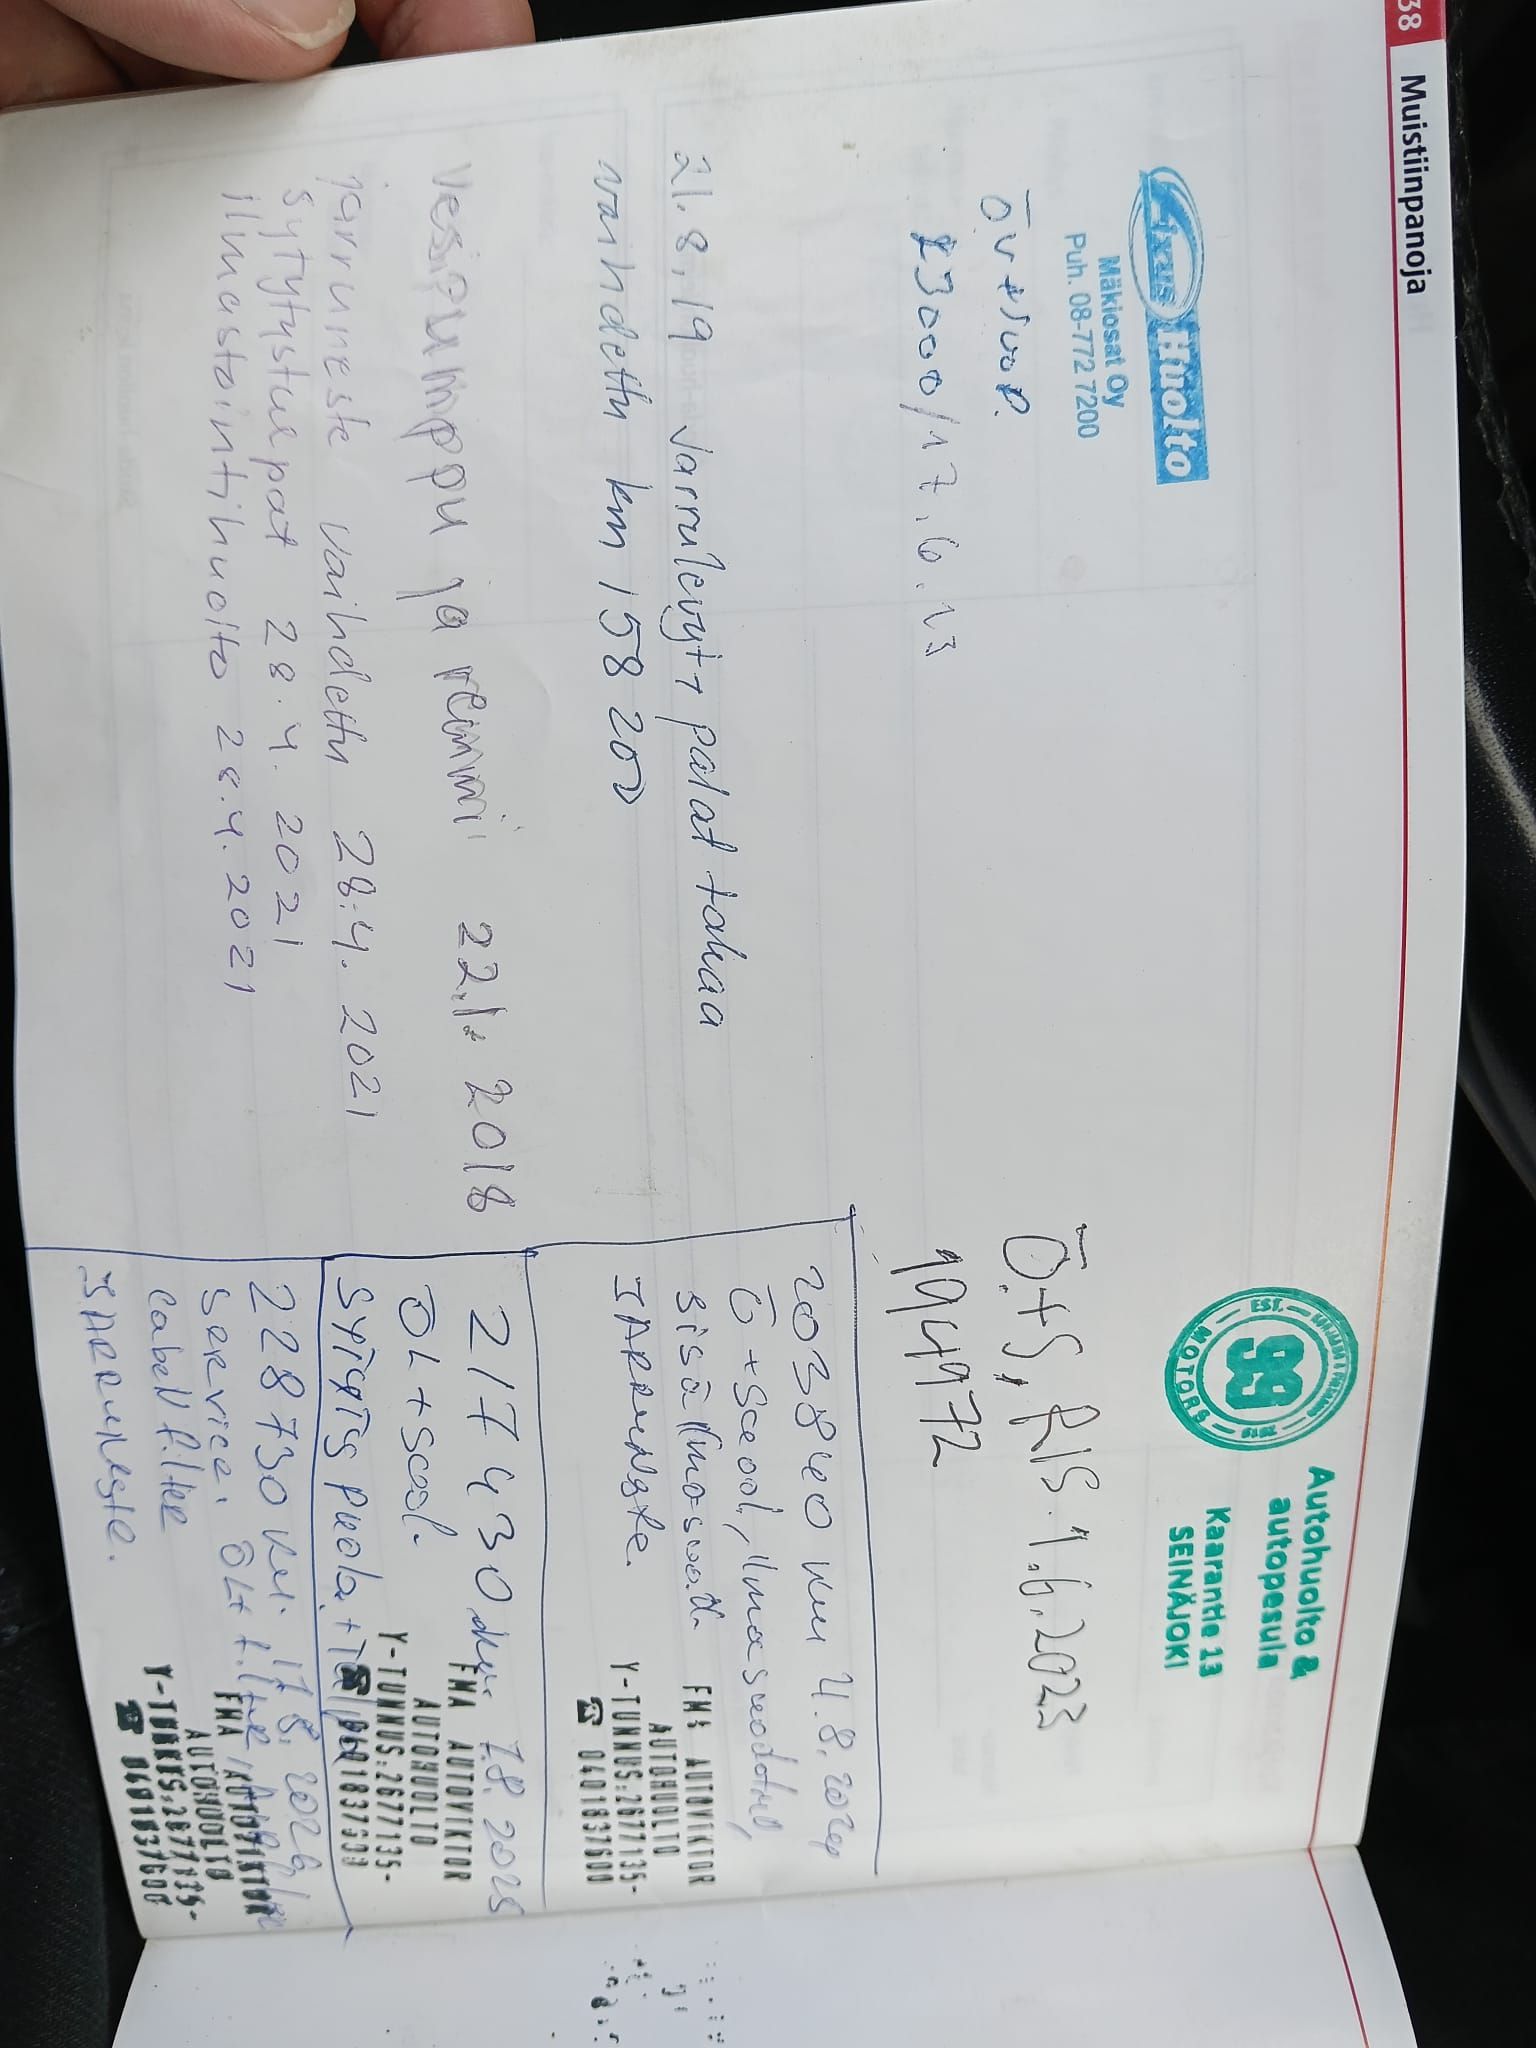 38 Muistiinpanoja
Fixus Huolto
Mäkiosat Oy
Puh. 08-772 7200
ÖV + suod.
23000/17.6.13
21.8.19 Jarrulevyt + palat takaa
vaihdettu km 158 200
Vesipumppu ja remmi 22.1.2018
jarruneste vaihdettu 28.4.2021
Sytytystulpat 28.4.2021
ilmastointihuolto 28.4.2021
Autohuolto &
autopesula
Kaarantie 13
SEINÄJOKI
EST. 2019
99
MOTORS
Ö+S, RIS. 1.6.2023
194972
203840 km 4.8.2024
Ö + suod., ilmasuodatin,
sisäilmasuod.
JARRUNESTE.
FMA AUTOVIKTOR
AUTOHUOLTO
Y-TUNNUS:2677135-
☎ 0401837600
217430 km 7.8.2025
ÖL + suod.
Sytytys puola + Tulpat
FMA AUTOVIKTOR
AUTOHUOLTO
Y-TUNNUS:2677135-
☎ 0401837600
228730 km. 17.8.2026
Service: ÖL + filter,
cabell filter
JARRUNESTE.
FMA AUTOVIKTOR
AUTOHUOLTO
Y-TUNNUS:2677135-
☎ 0401837600